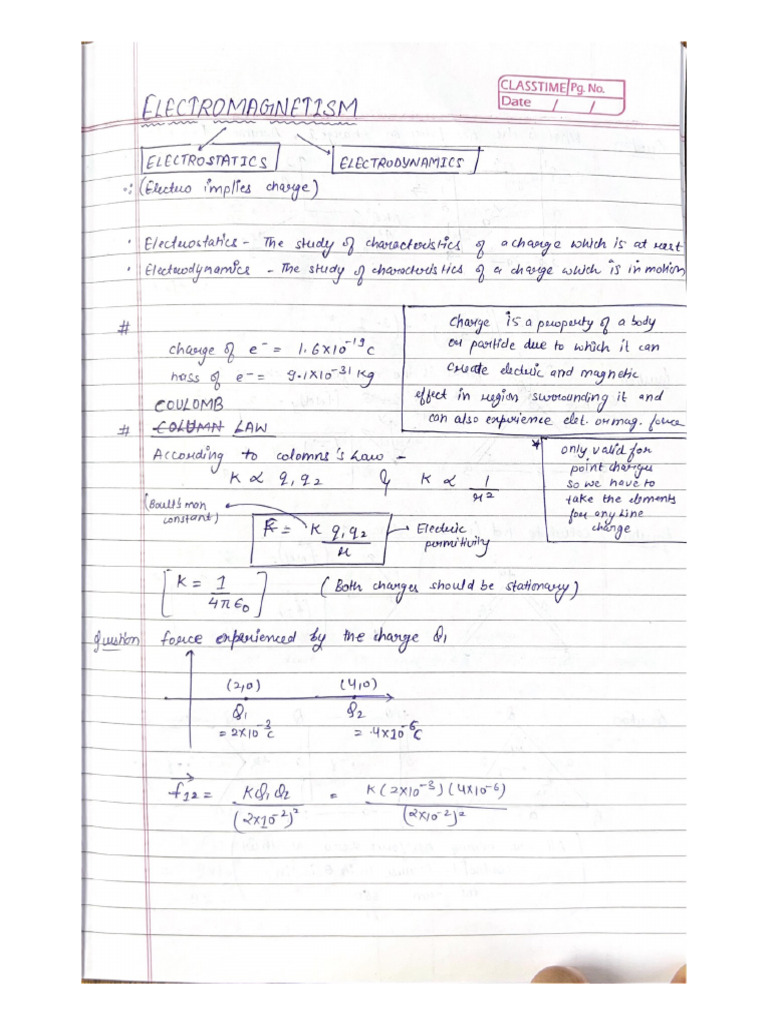 CLASSTIME Pg. No.
Date / /
ELECTROMAGNETISM
ELECTROSTATICS ELECTRODYNAMICS
∵ (Electro implies charge)
• Electrostatics - The study of characteristics of a charge which is at rest
• Electrodynamics - The study of characteristics of a charge which is in motion
#
charge of e⁻ = 1.6×10⁻¹⁹C
mass of e⁻ = 9.1×10⁻³¹ Kg
Charge is a property of a body
or particle due to which it can
create electric and magnetic
effect in region surrounding it and
can also experience elet. or mag. force
COULOMB
# COLUMN LAW
According to colomns's Law -
K ∝ q₁q₂ & K ∝ 1/r²
* only valid for
point charges
so we have to
take the elements
for any line
charge
(Boult's mon
constant)
F = K q₁q₂/r
Electric
permitivity
[K = 1/4πε₀] (Both charges should be stationary)
Question force experienced by the charge Q₁
(2,0) (4,0)
Q₁ Q₂
= 2×10⁻³C = 4×10⁻⁶C
f₁₂ = KQ₁Q₂/(2×10⁻²)² = K(2×10⁻³)(4×10⁻⁶)/(2×10⁻²)²